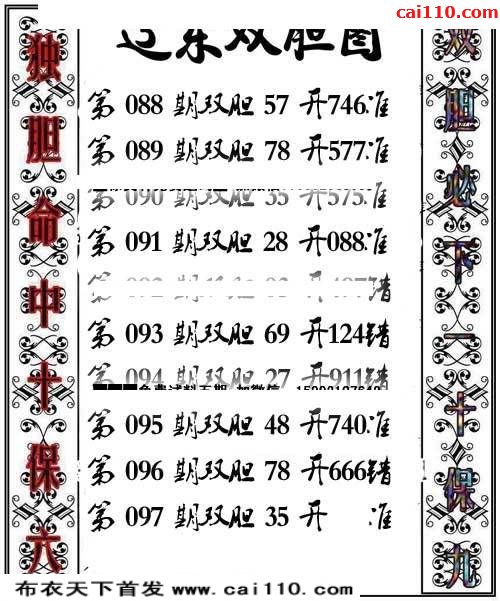 cai110.com
辽东双胆图
独胆命中十保六
双胆必下一十保九
第 088 期双胆 57 开746准
第 089 期双胆 78 开577准
第 090 期双胆 35 开575准
第 091 期双胆 28 开088准
第 093 期双胆 69 开124错
第 094 期双胆 27 开911错
第 095 期双胆 48 开740准
第 096 期双胆 78 开666错
第 097 期双胆 35 开 准
布衣天下首发 www.cai110.com